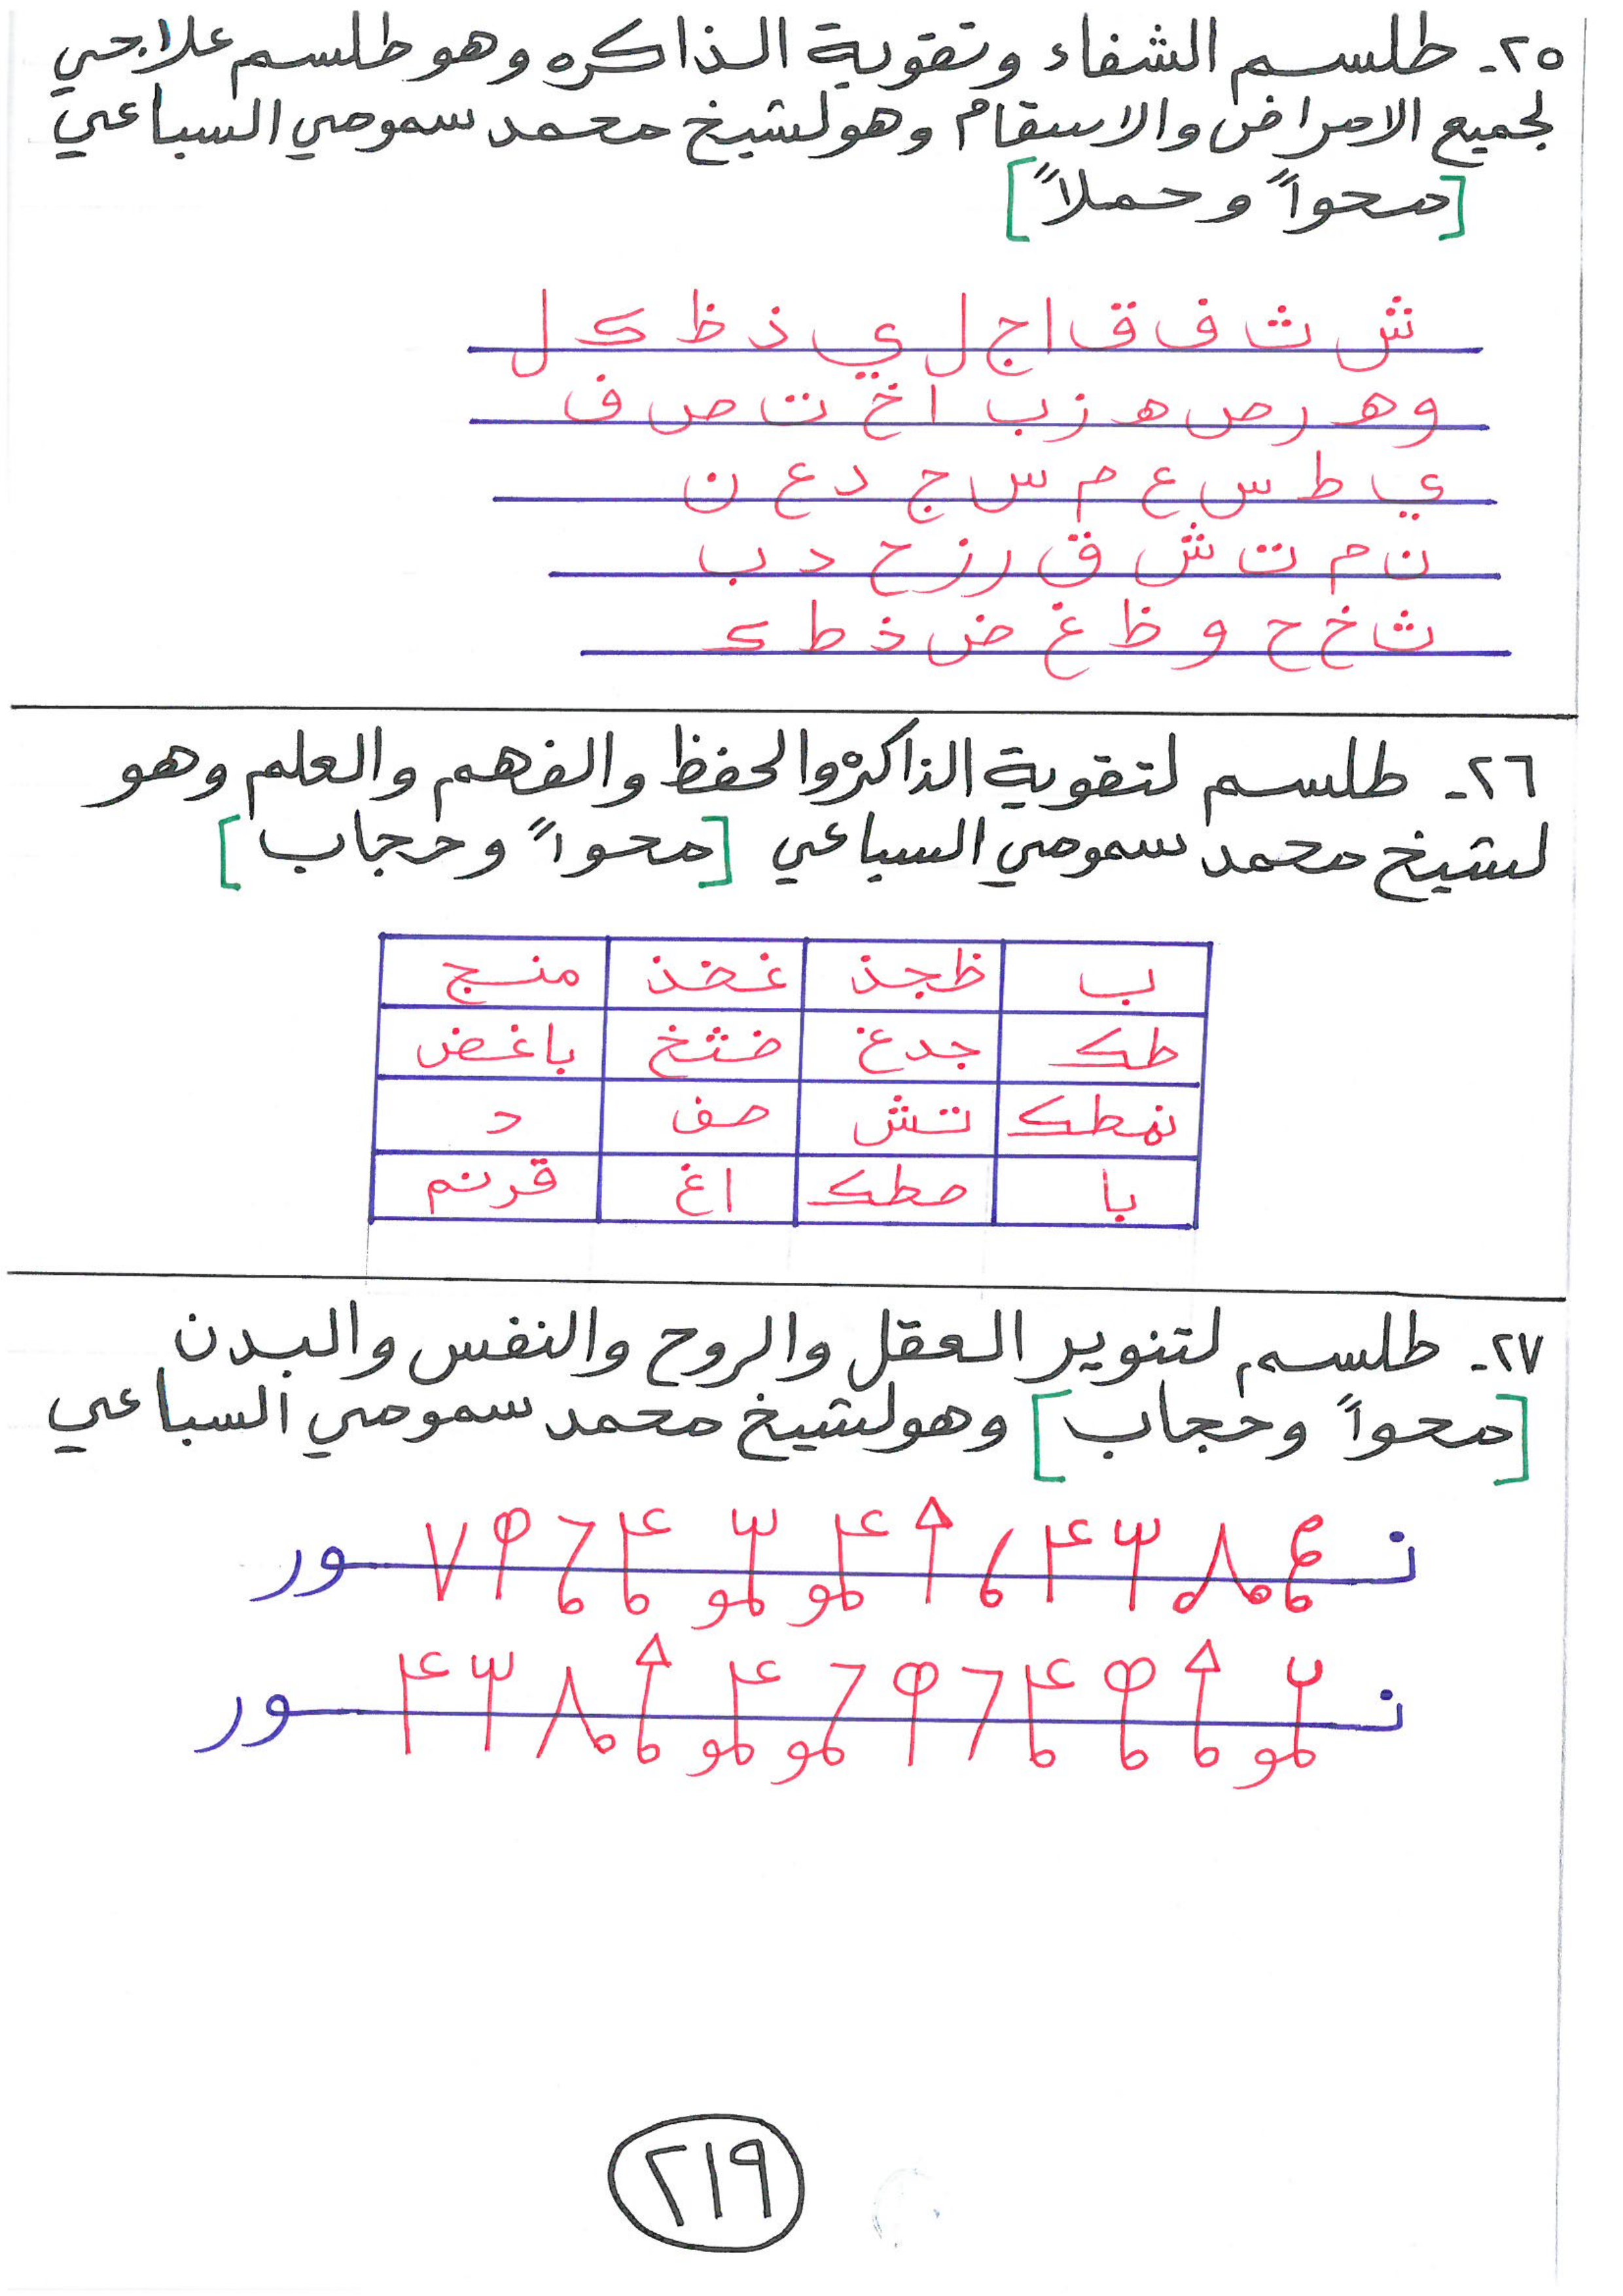 ٢٥- طلسم الشفاء وتقوية الذاكره وهو طلسم علاجي
لجميع الامراض والاسقام وهو لشيخ محمد سموحي السباعي
[محواً وحملاً]
ش ث ف ق ا ج ل ي ذ ظ ك ل
و ه ر ص ه ز ب ا خ ت ص ف
ي ط س ع م س ج د ع ن
ن م ت ش ق ر ز ح د ب
ث خ ح و ظ غ ض ذ ط ك
٢٦- طلسم لتقوية الذاكرة والحفظ والفهم والعلم وهو
لشيخ محمد سموحي السباعي [محواً وحجاب]
ب ظجذ غخذ منسج
طك جدغ ضثخ باغض
نمطك تش صف د
با مطك اغ قرنم
٢٧- طلسم لتنوير العقل والروح والنفس والبدن
[محواً وحجاب] وهو لشيخ محمد سموحي السباعي
نور
نور
٢١٩